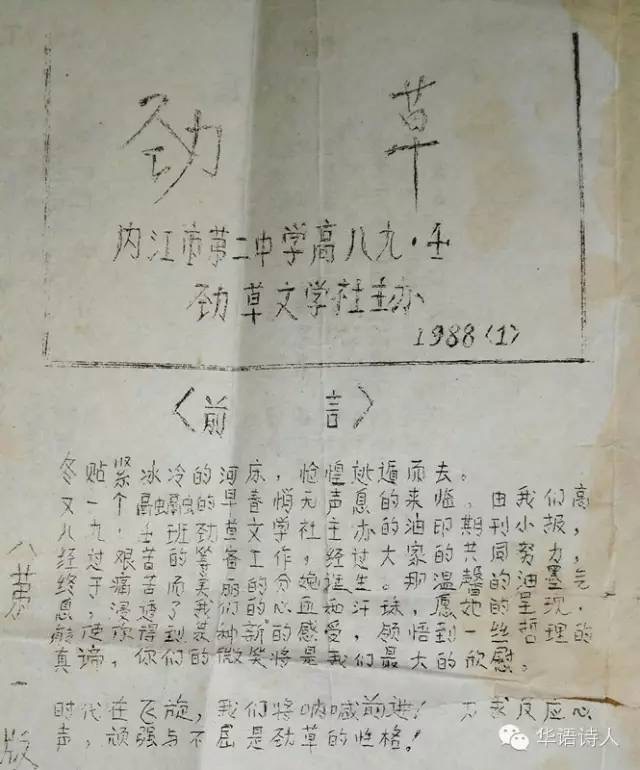 劲 草
内江市第二中学高八九·壬
劲草文学社主办
1988（1）
〈前 言〉
冬贴紧冰冷的河床，怆惶逃遁而去。
又一个融融的早春悄无声息的来临，由我们高
八九·壬班的劲草文学社主办的油印期刊小报，
经过艰苦的筹备工作，经过大家的共同努力，
终于痛苦而美丽的分娩诞生。那温馨的油墨气
息，浸透了我们的心血和汗珠，愿她的呈现，
能使你得到某种新的感受，领悟到一丝哲理的
真谛，你们的微笑将是我们最大的欣慰。
时代在飞旋，我们将呐喊前进！为我反应心
声，顽强与不屈是劲草的性格！
第一版
华语诗人